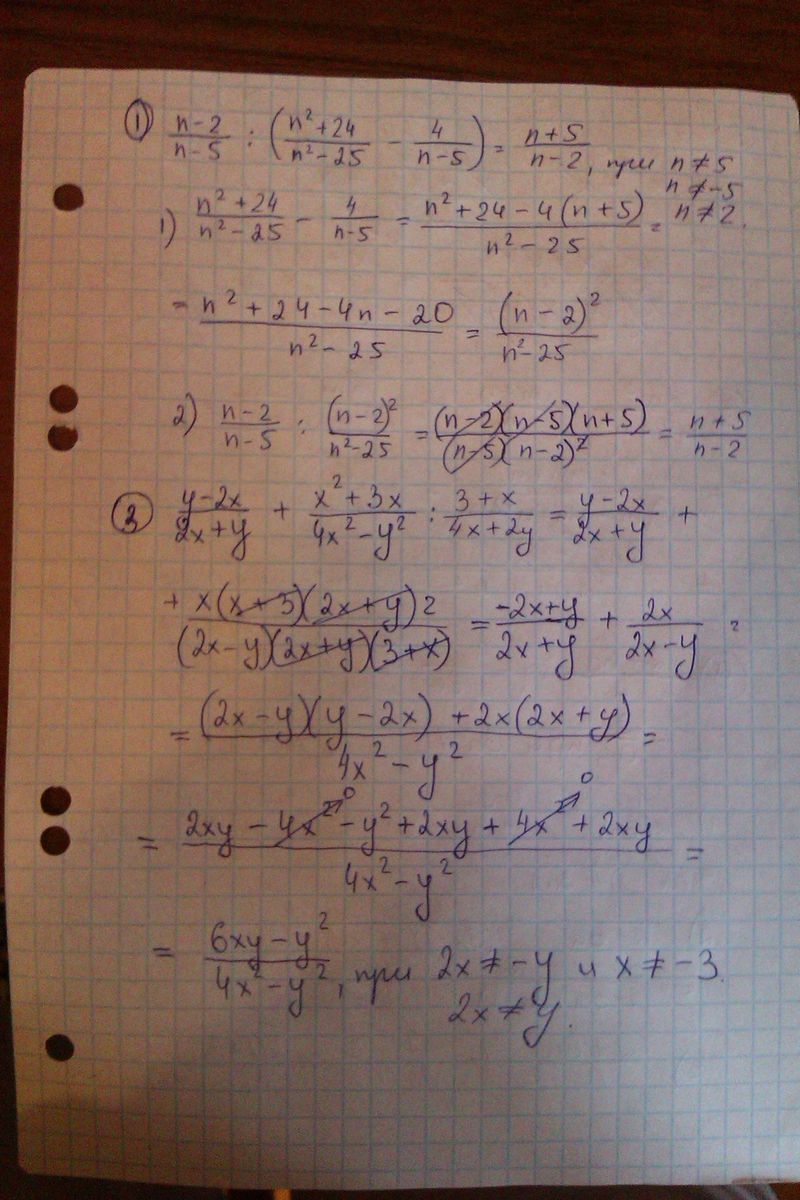 ① (n-2)/(n-5) : ((n²+24)/(n²-25) - 4/(n-5)) = (n+5)/(n-2), при n≠5
n≠-5
n≠2.
1) (n²+24)/(n²-25) - 4/(n-5) = (n²+24-4(n+5))/(n²-25) =
= (n²+24-4n-20)/(n²-25) = (n-2)²/(n²-25)
2) (n-2)/(n-5) : (n-2)²/(n²-25) = (n-2)(n-5)(n+5)/(n-5)(n-2)² = (n+5)/(n-2)
③ (y-2x)/(2x+y) + (x²+3x)/(4x²-y²) : (3+x)/(4x+2y) = (y-2x)/(2x+y) +
+ x(x+3)(2x+y)2/(2x-y)(2x+y)(3+x) = (-2x+y)/(2x+y) + 2x/(2x-y) =
= ((2x-y)(y-2x)+2x(2x+y))/(4x²-y²) =
= (2xy-4x²-y²+2xy+4x²+2xy)/(4x²-y²) =
= (6xy-y²)/(4x²-y²), при 2x≠-y и x≠-3.
2x≠y.